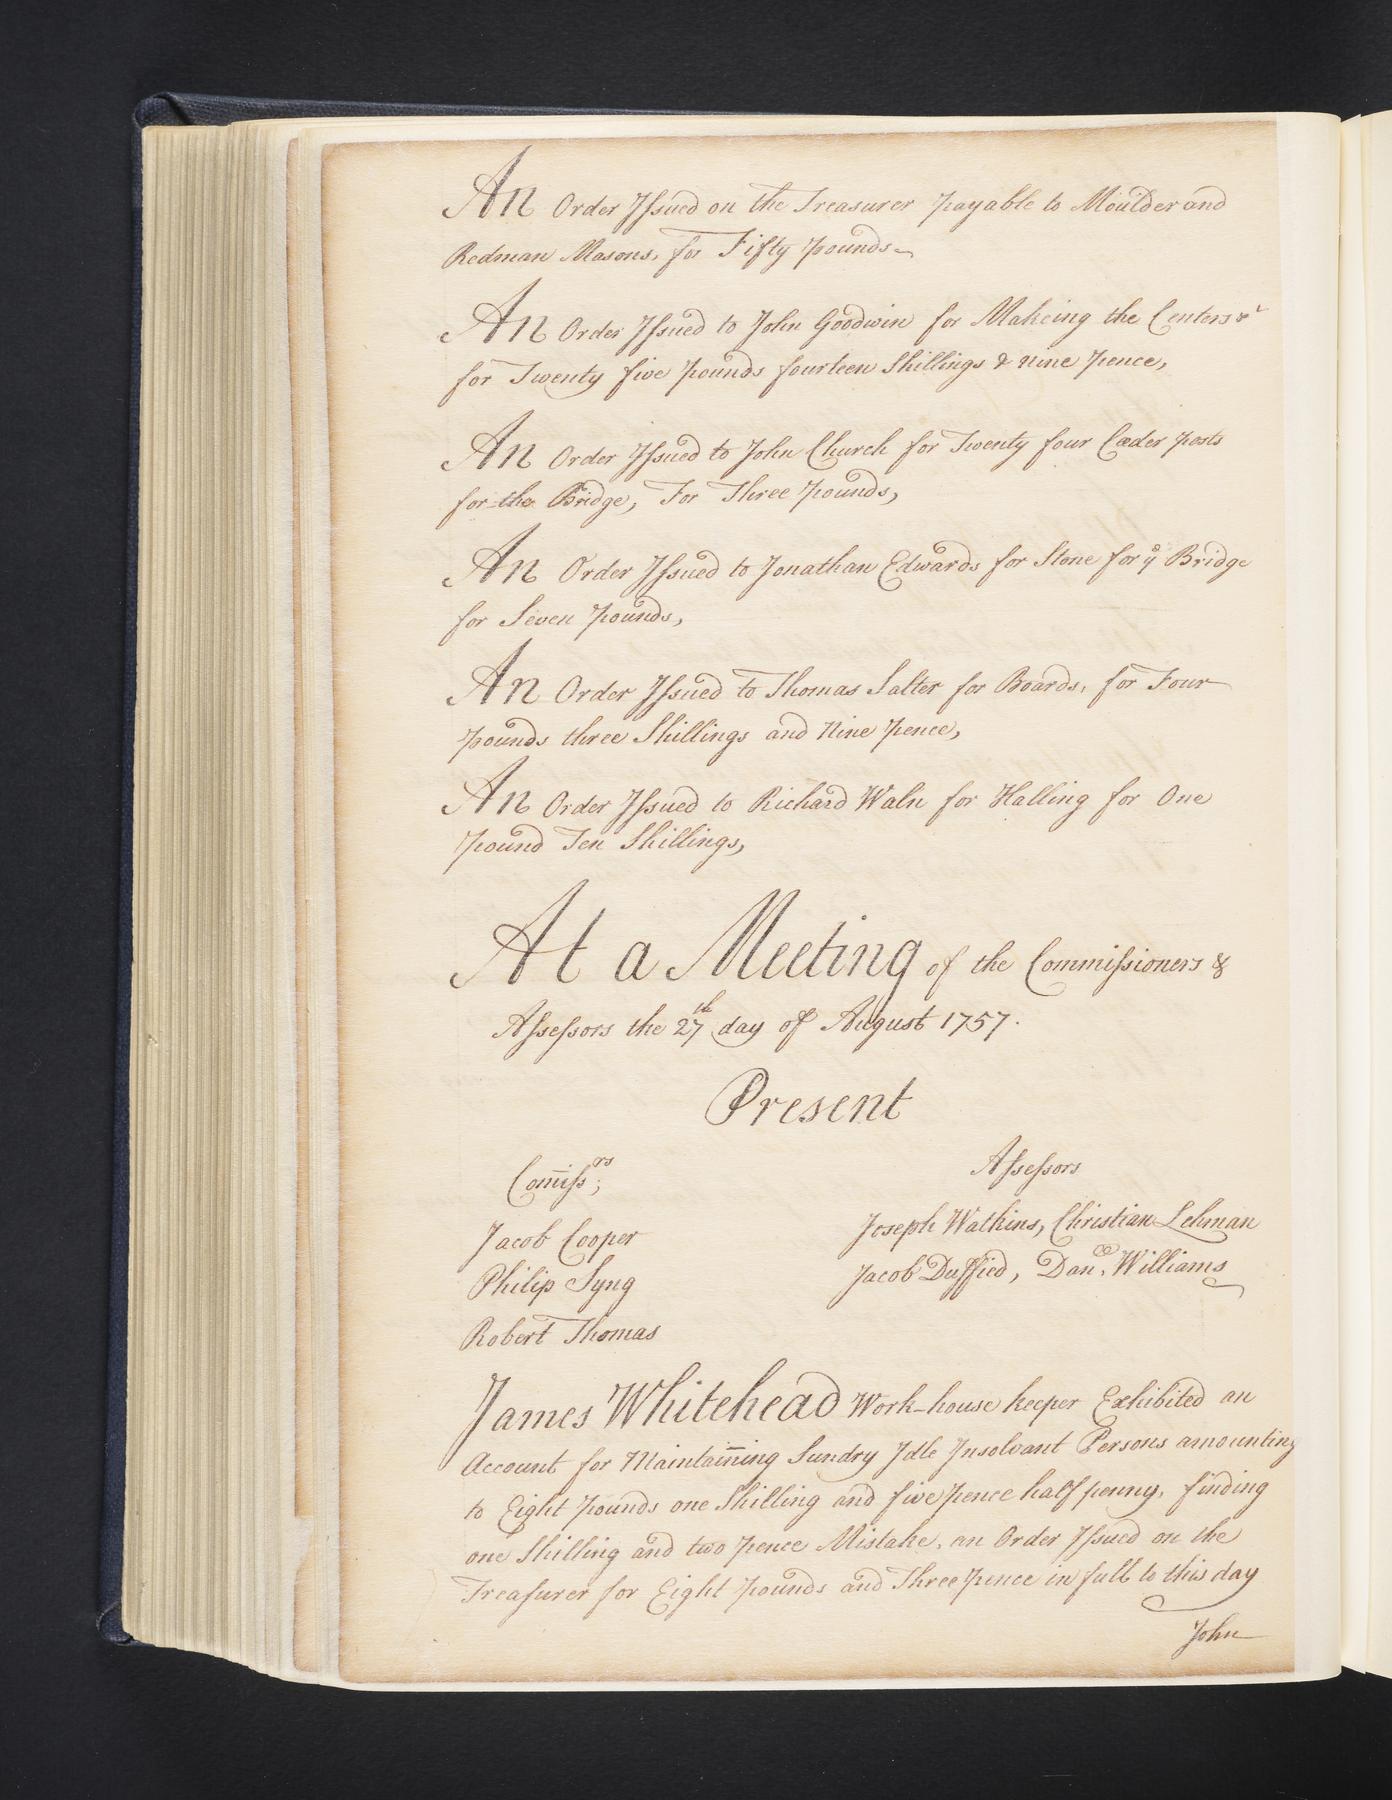 An Order Issued on the Treasurer payable to Moulder and
Redman Masons, for Fifty pounds
An Order Issued to John Goodwin for Makeing the Centers &c
for Twenty five pounds fourteen Shillings & nine pence,
An Order Issued to John Church for Twenty four Cæder posts
for the Bridge, For Three pounds,
An Order Issued to Jonathan Edwards for Stone for yᵉ Bridge
for Seven pounds,
An Order Issued to Thomas Salter for Boards, for Four
pounds three Shillings and Nine pence,
An Order Issued to Richard Waln for Halling for One
pound Ten Shillings,
At a Meeting of the Commissioners &
Assessors the 27th day of August 1757.
Present
Com̅issrs;
Assessors
Jacob Cooper
Joseph Watkins, Christian Lehman
Philip Syng
Jacob Duffied, Danel. Williams
Robert Thomas
James Whitehead Work-house keeper Exhibited an
Account for Maintain̅ing Sundry Idle Insolvant Persons amounting
to Eight pounds one Shilling and five pence half penny, finding
one Shilling and two pence Mistake, an Order Issued on the
Treasurer for Eight pounds and Three pence in full to this day
John